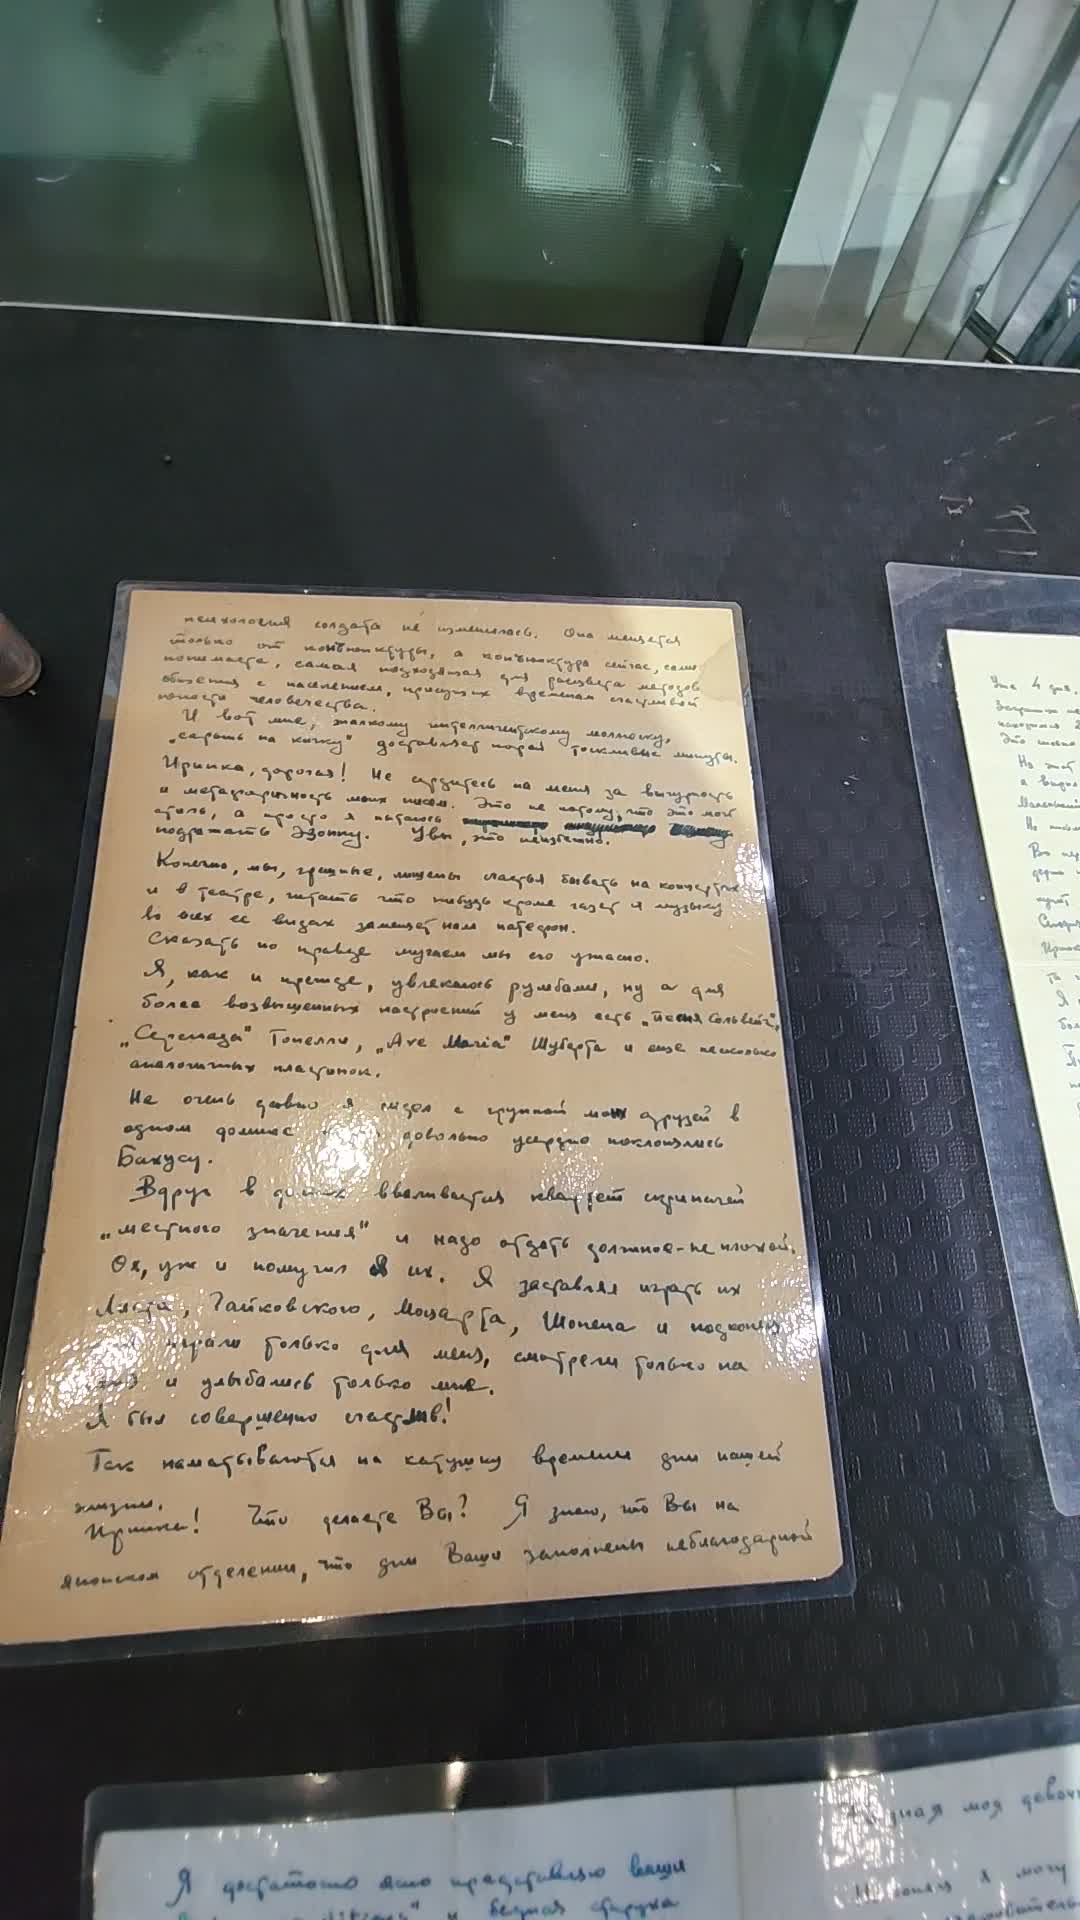 психология солдата не изменилась. Она меняется
только от конъюнктуры, а конъюнктура сейчас, сами
понимаете, самая подходящая для расцвета методов
общения с населением, присущих временам счастливой
юности человечества.
И вот мне, жалкому интеллигентскому моллюску,
„сарынь на кичку" доставляет порой тоскливые минуты.
Иринка, дорогая! Не сердитесь на меня за вычурность
и метафоричность моих писем. Это не потому, что это мой
стиль, а просто я пытаюсь
подражать Эзопу. Увы, это неизбежно.
Конечно, мы, грешные, лишены счастья бывать на концертах
и в театре, читать что нибудь кроме газет и музыку
во всех ее видах замещает нам патефон.
Сказать по правде мучаем мы его ужасно.
Я, как и прежде, увлекаюсь румбами, ну а для
более возвышенных настроений у меня есть „Песня Сольвейг",
„Серенада" Тоселли, „Ave Maria" Шуберта и еще несколько
аналогичных пластинок.
Не очень давно я сидел с группой моих друзей в
одном домике довольно усердно поклонялись
Бахусу.
Вдруг в домик вваливается квартет скрипачей
„местного значения" и надо отдать должное - не плохой.
Ох, уж и помучил я их. Я заставлял играть их
Листа, Чайковского, Моцарта, Шопена и под конец
играли только для меня, смотрели только на
и улыбались только мне.
Я был совершенно счастлив!
Так наматываются на катушку времени дни нашей
жизни.
Иринка! Что делаете Вы? Я знаю, что Вы на
японском отделении, что дни Ваши заполнены неблагодарной
Уже 4 дня,
находимся
Это
На этот
а
Маленький
Но
Я
Я достаточно ясно представляю ваши
и бедная старуха
моя девоч
я могу